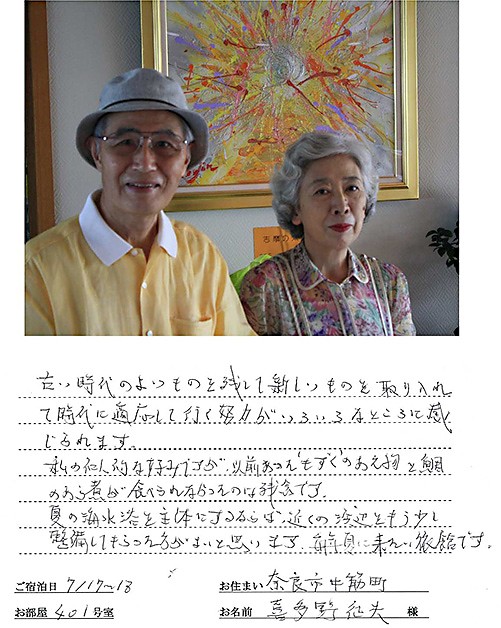 志摩の
古い時代のよいものを残して新しいものを取り入れ
て時代に適応して行く努力がいろいろなところに感
じられます。
私の個人的な好みですが以前あった"もずく"のお元物と鯛
のあら煮が食べられなかったのは残念です。
夏の海水浴を主体にするならば、近くの浜辺をもう少し
整備してもらった方がよいと思います。 に来たい旅館です。
ご宿泊日 7/17〜18
お住まい 奈良市中筋町
お部屋 401号室
お名前 喜多野 夫 様